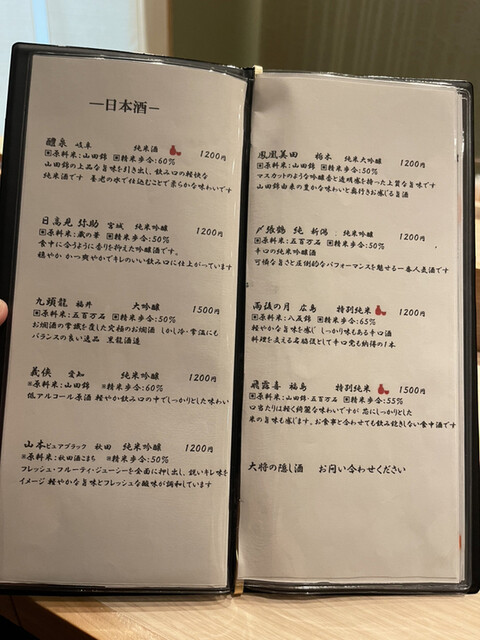 ―日本酒―
醴泉 岐阜 純米酒 1200円
▣原料米:山田錦 ▣精米歩合:60%
山田錦の上品な旨味を引き出し、飲み口の軽快な
純米酒です 養老の水で仕込むことで柔らかな味わいです
日高見 弥助 宮城 純米吟醸 1200円
▣原料米:蔵の華 ▣精米歩合:50%
食中に合うように香りを抑えた吟醸酒です。
穏やか かつ爽やかでキレのいい飲み口に仕上がっています
九頭龍 福井 大吟醸 1500円
▣原料米:五百万石 ▣精米歩合:50%
お燗酒の常識を覆した究極のお燗酒 しかし冷・常温にも
バランスの良い逸品 黒龍酒造
義侠 愛知 純米吟醸 1200円
※原料米:山田錦 ※精米歩合:60%
低アルコール原酒 軽やか飲み口の中でしっかりとした味わい
山本ピュアブラック 秋田 純米吟醸 1200円
※原料米:秋田酒こまち ※精米歩合:50%
フレッシュ・フルーティ・ジューシーを全面に押し出し、鋭いキレ味を
イメージ 軽やかな旨味とフレッシュな酸味が調和しています
鳳凰美田 栃木 純米大吟醸 1200円
▣原料米:山田錦 ▣精米歩合:50%
マスカットのような吟醸香と透明感を持った上質な旨味です
山田錦由来の豊かな味わいと奥行きお感じる旨酒
〆張鶴 純 新潟 純米吟醸 1200円
▣原料米:五百万石 ▣精米歩合:50%
辛口の純米吟醸酒
可憐な旨さと圧倒的なパフォーマンスを魅せる一番人気酒です
雨後の月 広島 特別純米 1200円
▣原料米:八反錦 ▣精米歩合:65%
軽やかな旨味を感じ しっかり味もある辛口酒
料理を支える名脇役として辛口党も納得の1本
飛露喜 福島 特別純米 1500円
▣原料米:山田錦・五百万石 ▣精米歩合:55%
口当たりは軽く綺麗な味わいですが 芯にしっかりとした
米の旨味も感じます。お食事と合わせても飲み飽きしない食中酒です
大将の隠し酒 お問い合わせください